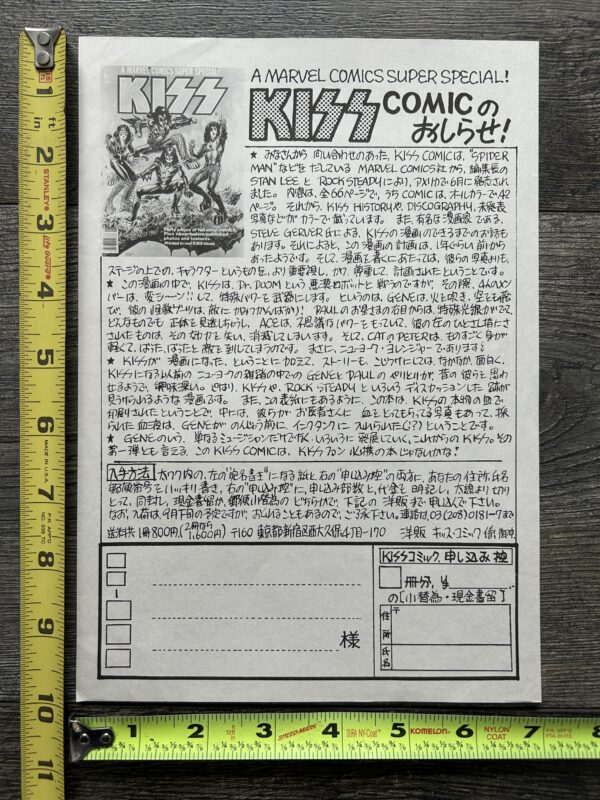 A MARVEL COMICS SUPER SPECIAL!
KISS
A MARVEL COMICS SUPER SPECIAL!
KISS COMICの
おしらせ!
★ みなさんから 問い合わせのあった、KISS COMICは、"SPIDER
MAN"などをだしている MARVEL COMICS社から、編集長の
STAN LEE と ROCK STEADYにより、アメリカで6月に発売され
ました。内容は、全66ページで、うち COMICは、オールカラーで42
ページ。それから、KISS HISTORYや、DISCOGRAPHY、未発表
写真などが カラーで載っています。また、有名な漫画家である、
STEVE GERVER氏による、KISSの漫画のできるまでのお話も
あります。それによると、この漫画の計画は、1年ぐらい前から
あったようです。そして、漫画を書くにあたっては、彼らの写真よりも、
ステージの上での、キャラクターというものを、より重要視し、かつ、尊重して、計画されたということです。
★ この漫画の中で、KISSは、Dr. DOOM という 悪漢ロボットと 戦うのですが、その際、4人のメン
バーは、変シーン!! して、特殊パワーを武器にします。というのは、GENEは、火を吹き、空も飛
で、彼の
PAULのお星さまの右目からは、特殊光線がでて、
どんなものでも 正体を見通しちゃうし、ACEは、不思議なパワーをもっていて、彼の
されたものは、その
消滅してしまいます。そして、CATのPETERは、ものすごく身が
軽くて、ばったばったと敵を倒してしまうのです。まさに、ニューヨーク・レンジャーであります!
★ KISSが 漫画になった、ということに加えて、ストーリーも、こじつけにしては、なかなか、面白く、
KISSになる以前の ニューヨークの雑踏の中での GENEと PAULの やりとりが、昔の 彼らを 思わ
せるようで、興味深い。やはり、KISSや、ROCK STEADYと いろいろ ディスカッションした 跡が
見うけられるような漫画です。また、この表紙にもあるように、この本は、KISSの本物の血で
印刷されたということで、中には、彼らが お医者さんに 血をとってもらってる写真もあって、採
られた血液は、GENEが
インクタンクに 入れられた(?)ということです。
★ GENEのいう、単なるミュージシャンだけでなく、いろいろに 発展していく、これからのKISS。その
第一弾とも言える、この KISS COMICは、KISSファン 必携の本じゃないかな!
入手方法 太ワク内の、左の"宛名書き"になる紙と、右の"申し込み控"の両方に、あなたの住所、氏名
郵便番号をハッキリ書き、右の"申し込み控"に、申し込み部数と、代金を 明記し、太線より切りと
って、同封し、現金書留か、郵便小替為の どちらかで、下記の 洋販まで、申し込んで下さい。
なお、入荷は、9月下旬の予定ですが、おくれることもあるので、ご了承下さい。連絡は、03(208)0181〜7まで
送料共 1冊 800円(2冊なら 1,600円) 〒160 東京都新宿区西大久保4丁目-170 洋販 キッス・コミック 係
様
KISSコミック、申し込み控
冊分、¥
の[小替為・現金書留]
〒
住所
氏名
1
ft
2
STANLEY
3
4
5
6
MADE IN U.S.A.
7
8
9
10
11
1
2
3
SPEED-MARK
4
DURA NY-Coat
5
KOMELON
6
NYLON COAT
7
8